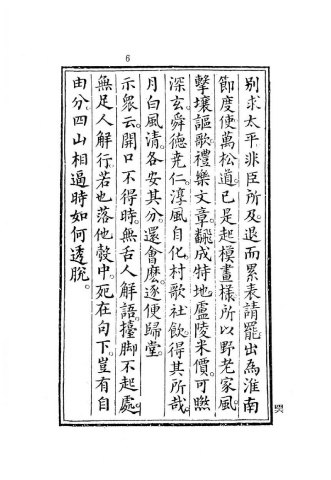 6
別求太平。非臣所及。退而累表請罷。出爲淮南
節度使。萬松道。已是起模畫樣。所以野老家風。
擊壤謳歌。禮樂文章。翻成特地。廬陵米價。可煞
深玄。舜德堯仁。淳風自化。村歌社飲。得其所哉。
月白風清。各安其分。還會麼。逐便歸堂。
示衆云。開口不得時。無舌人解語。擡脚不起處。
無足人解行。若也落他彀中。死在句下。豈有自
由分。四山相逼時如何透脫。